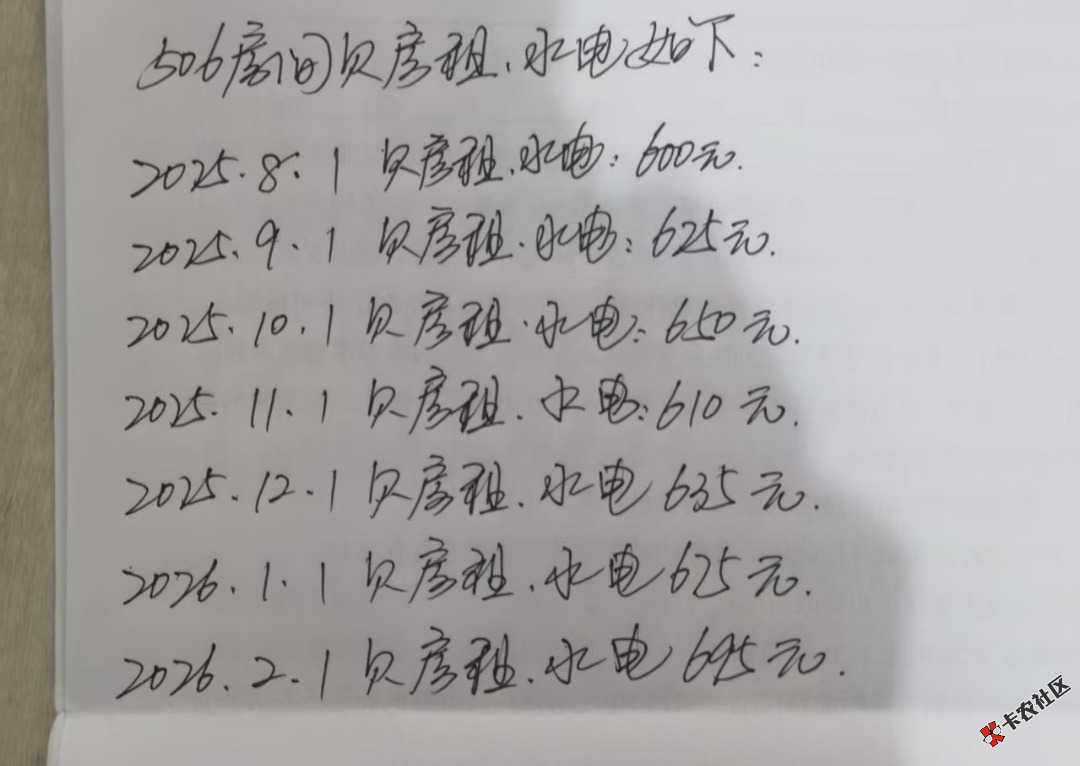 506房间欠房租、水电如下:
2025.8.1 欠房租.水电:600元.
2025.9.1 欠房租.水电:625元.
2025.10.1 欠房租.水电:650元.
2025.11.1 欠房租.水电:610元.
2025.12.1 欠房租.水电 635元.
2026.1.1 欠房租.水电 625元.
2026.2.1 欠房租.水电 695元.
卡农社区